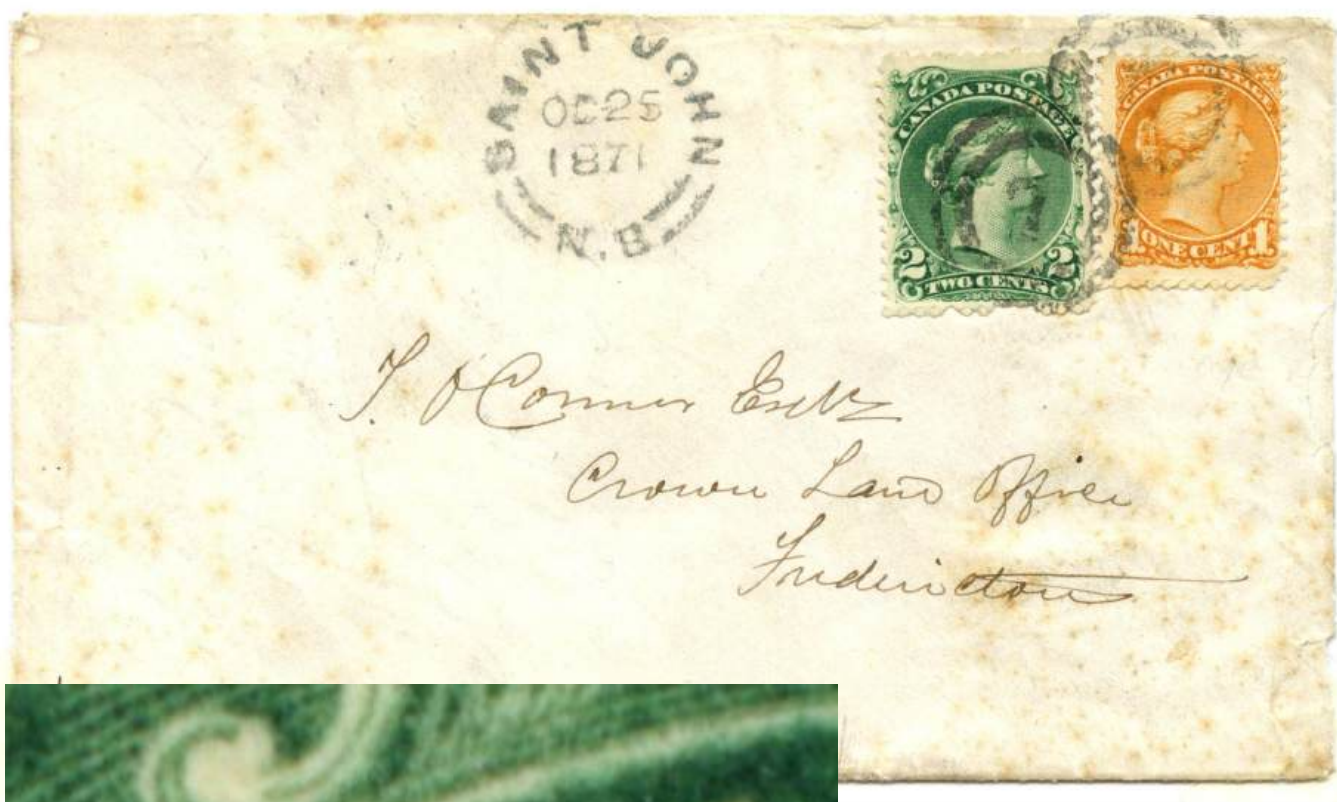 SAINT JOHN
OC 25
1871
N.B.
CANADA POSTAGE
2 TWO CENTS 2
CANADA POSTAGE
1 ONE CENT 1
T. O'Connor
Crown Land Office
Fredericton